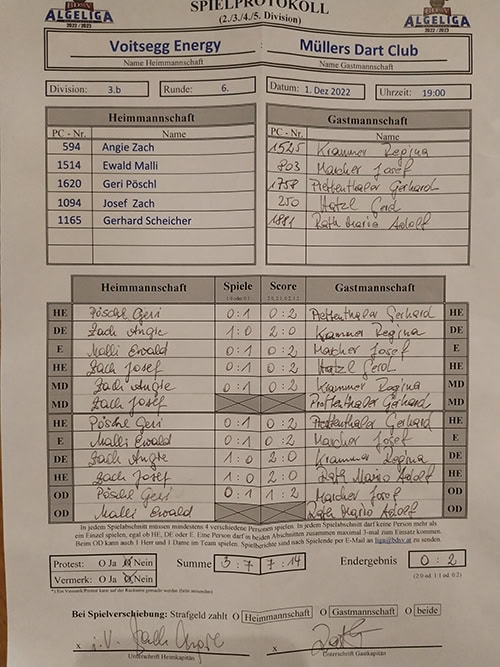 SPIELPROTOKOLL
ALGELIGA 2022/2023 (2./3./4./5. Division) ALGELIGA 2022/2023
Voitsegg Energy : Müllers Dart Club
Name Heimmannschaft Name Gastmannschaft
Division: 3.b Runde: 6. Datum: 1. Dez 2022 Uhrzeit: 19:00
Heimmannschaft Gastmannschaft
PC - Nr. Name PC - Nr. Name
594 Angie Zach 1525 Krammer Regina
1514 Ewald Malli 803 Marcher Josef
1620 Geri Pöschl 1758 Pfeffenthaler Gerhard
1094 Josef Zach 250 Hatzl Gerd
1165 Gerhard Scheicher 1881 Rath Mario Adolf
Heimmannschaft Spiele Score Gastmannschaft
HE Pöschl Geri 0:1 0:2 Pfeffenthaler Gerhard HE
DE Zach Angie 1:0 2:0 Krammer Regina DE
E Malli Ewald 0:1 0:2 Marcher Josef E
HE Zach Josef 0:1 0:2 Hatzl Gerd HE
MD Zach Angie 0:1 0:2 Krammer Regina MD
MD Zach Josef Pfeffenthaler Gerhard MD
HE Pöschl Geri 0:1 0:2 Pfeffenthaler Gerhard HE
E Malli Ewald 0:1 0:2 Marcher Josef E
DE Zach Angie 1:0 2:0 Krammer Regina DE
HE Zach Josef 1:0 2:0 Rath Mario Adolf HE
OD Pöschl Geri 0:1 1:2 Marcher Josef OD
OD Malli Ewald Rath Mario Adolf OD
In jedem Spielabschnitt müssen mindestens 4 verschiedene Personen spielen. In jedem Spielabschnitt darf keine Person mehr als
ein Einzel spielen, egal ob HE, DE oder E. Eine Person darf in beiden Abschnitten zusammen maximal 3-mal zum Einsatz kommen.
Beim OD kann auch 1 Herr und 1 Dame im Team spielen. Spielberichte sind nach Spielende per E-Mail an liga@bdsv.at zu senden.
Protest: O Ja O Nein Summe 3:7 7:14 Endergebnis 0:2
Vermerk: O Ja O Nein (2:0 od. 1:1 od. 0:2)
Bei Spielverschiebung: Strafgeld zahlt O Heimmannschaft O Gastmannschaft O beide
x i.V. Zach Angie x
Unterschrift Heimkapitän Unterschrift Gastkapitän